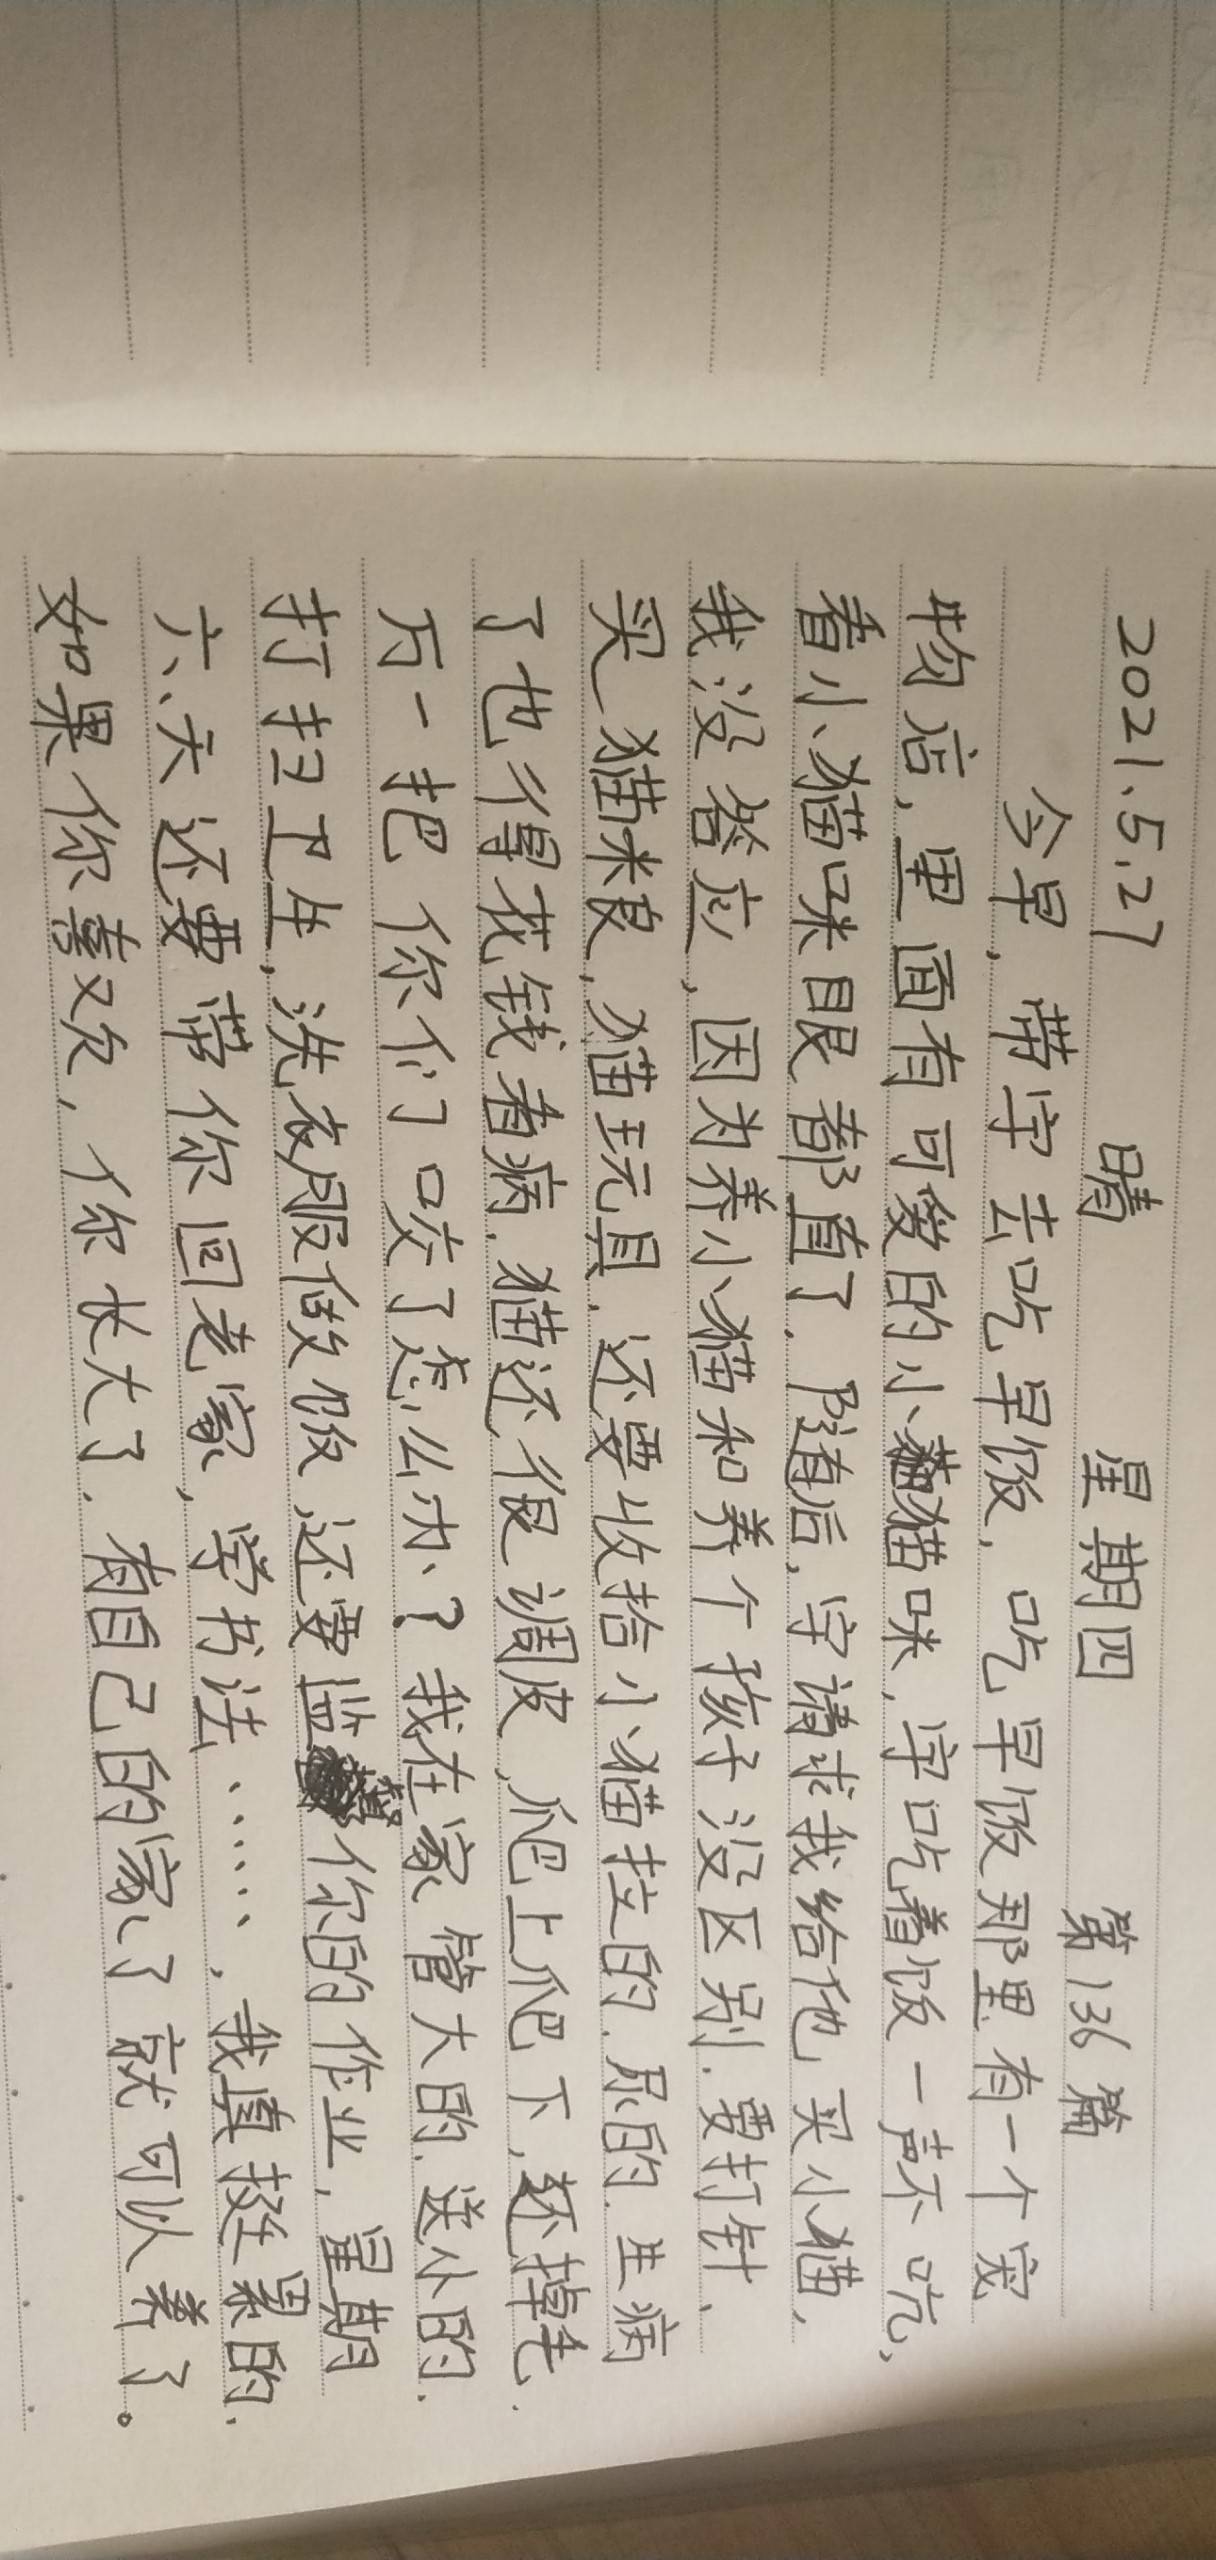 2021.5.27 晴 星期四 第136篇
今早,带宇去吃早饭,吃早饭那里有一个宠
物店,里面有可爱的小猫咪,宇吃着饭一声不吭,
看小猫咪眼都直了.随后,宇请求我给他买小猫,
我没答应,因为养小猫和养个孩子没区别.要打针、
买猫粮,猫玩具.还要收拾小猫拉的.尿的.生病
了也得花钱看病.猫还很调皮,爬上爬下,还掉毛.
万一把你们咬了怎么办?我在家管大的.送小的.
打扫卫生,洗衣服做饭,还要监督你的作业,星期
六、天还要带你回老家,学书法……,我真挺累的.
如果你喜欢,你长大了.有自己的家了就可以养了。